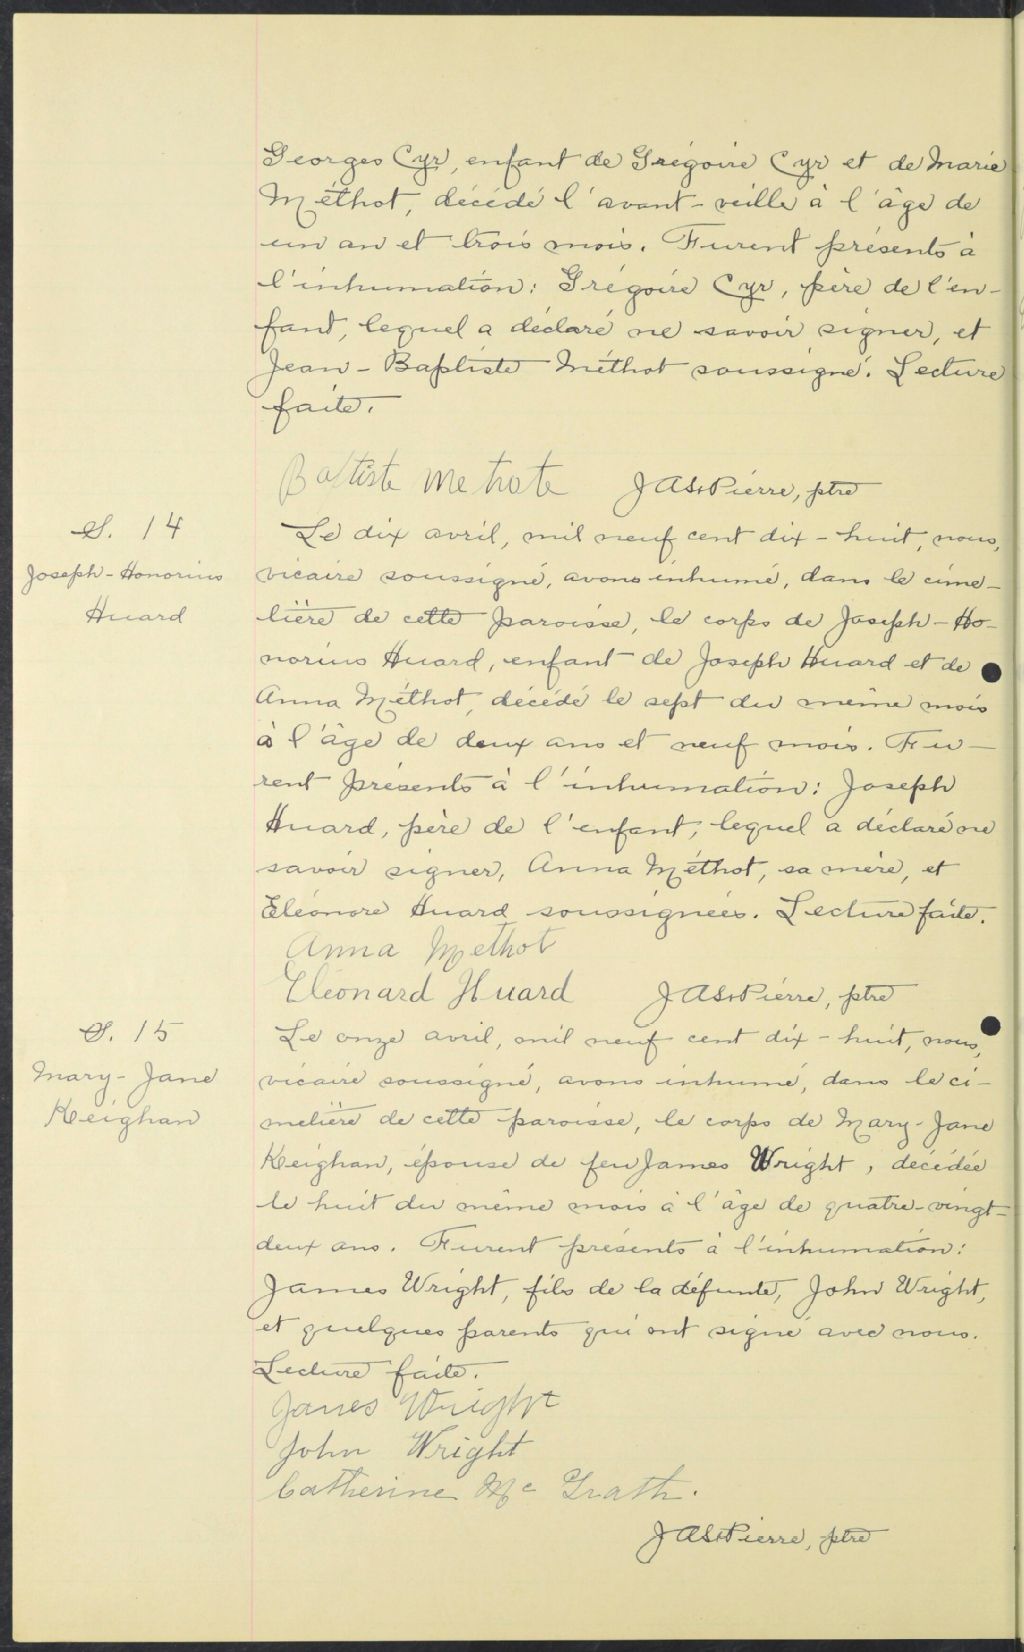 Georges Cyr, enfant de Grégoire Cyr et de Marie
Méthot, décédé l'avant-veille à l'âge de
un an et trois mois. Furent présents à
l'inhumation: Grégoire Cyr, père de l'en-
fant, lequel a déclaré ne savoir signer, et
Jean-Baptiste Méthot soussigné. Lecture
faite.
Batiste Methote JAStPierre, ptre
S. 14
Joseph-Honorius
Huard
Le dix avril, mil neuf cent dix-huit, nous,
vicaire soussigné, avons inhumé, dans le cime-
tière de cette paroisse, le corps de Joseph-Ho-
norius Huard, enfant de Joseph Huard et de
Anna Méthot, décédé le sept du même mois
à l'âge de deux ans et neuf mois. Fu-
rent présents à l'inhumation: Joseph
Huard, père de l'enfant, lequel a déclaré ne
savoir signer, Anna Méthot, sa mère, et
Eléonore Huard soussignées. Lecture faite.
Anna Methot
Eléonard Huard JAStPierre, ptre
S. 15
Mary-Jane
Keighan
Le onze avril, mil neuf cent dix-huit, nous,
vicaire soussigné, avons inhumé, dans le ci-
metière de cette paroisse, le corps de Mary-Jane
Keighan, épouse de feu James Wright, décédée
le huit du même mois à l'âge de quatre-vingt-
deux ans. Furent présents à l'inhumation:
James Wright, fils de la défunte, John Wright,
et quelques parents qui ont signé avec nous.
Lecture faite.
James Wright
John Wright
Catherine Mc Grath.
JAStPierre, ptre